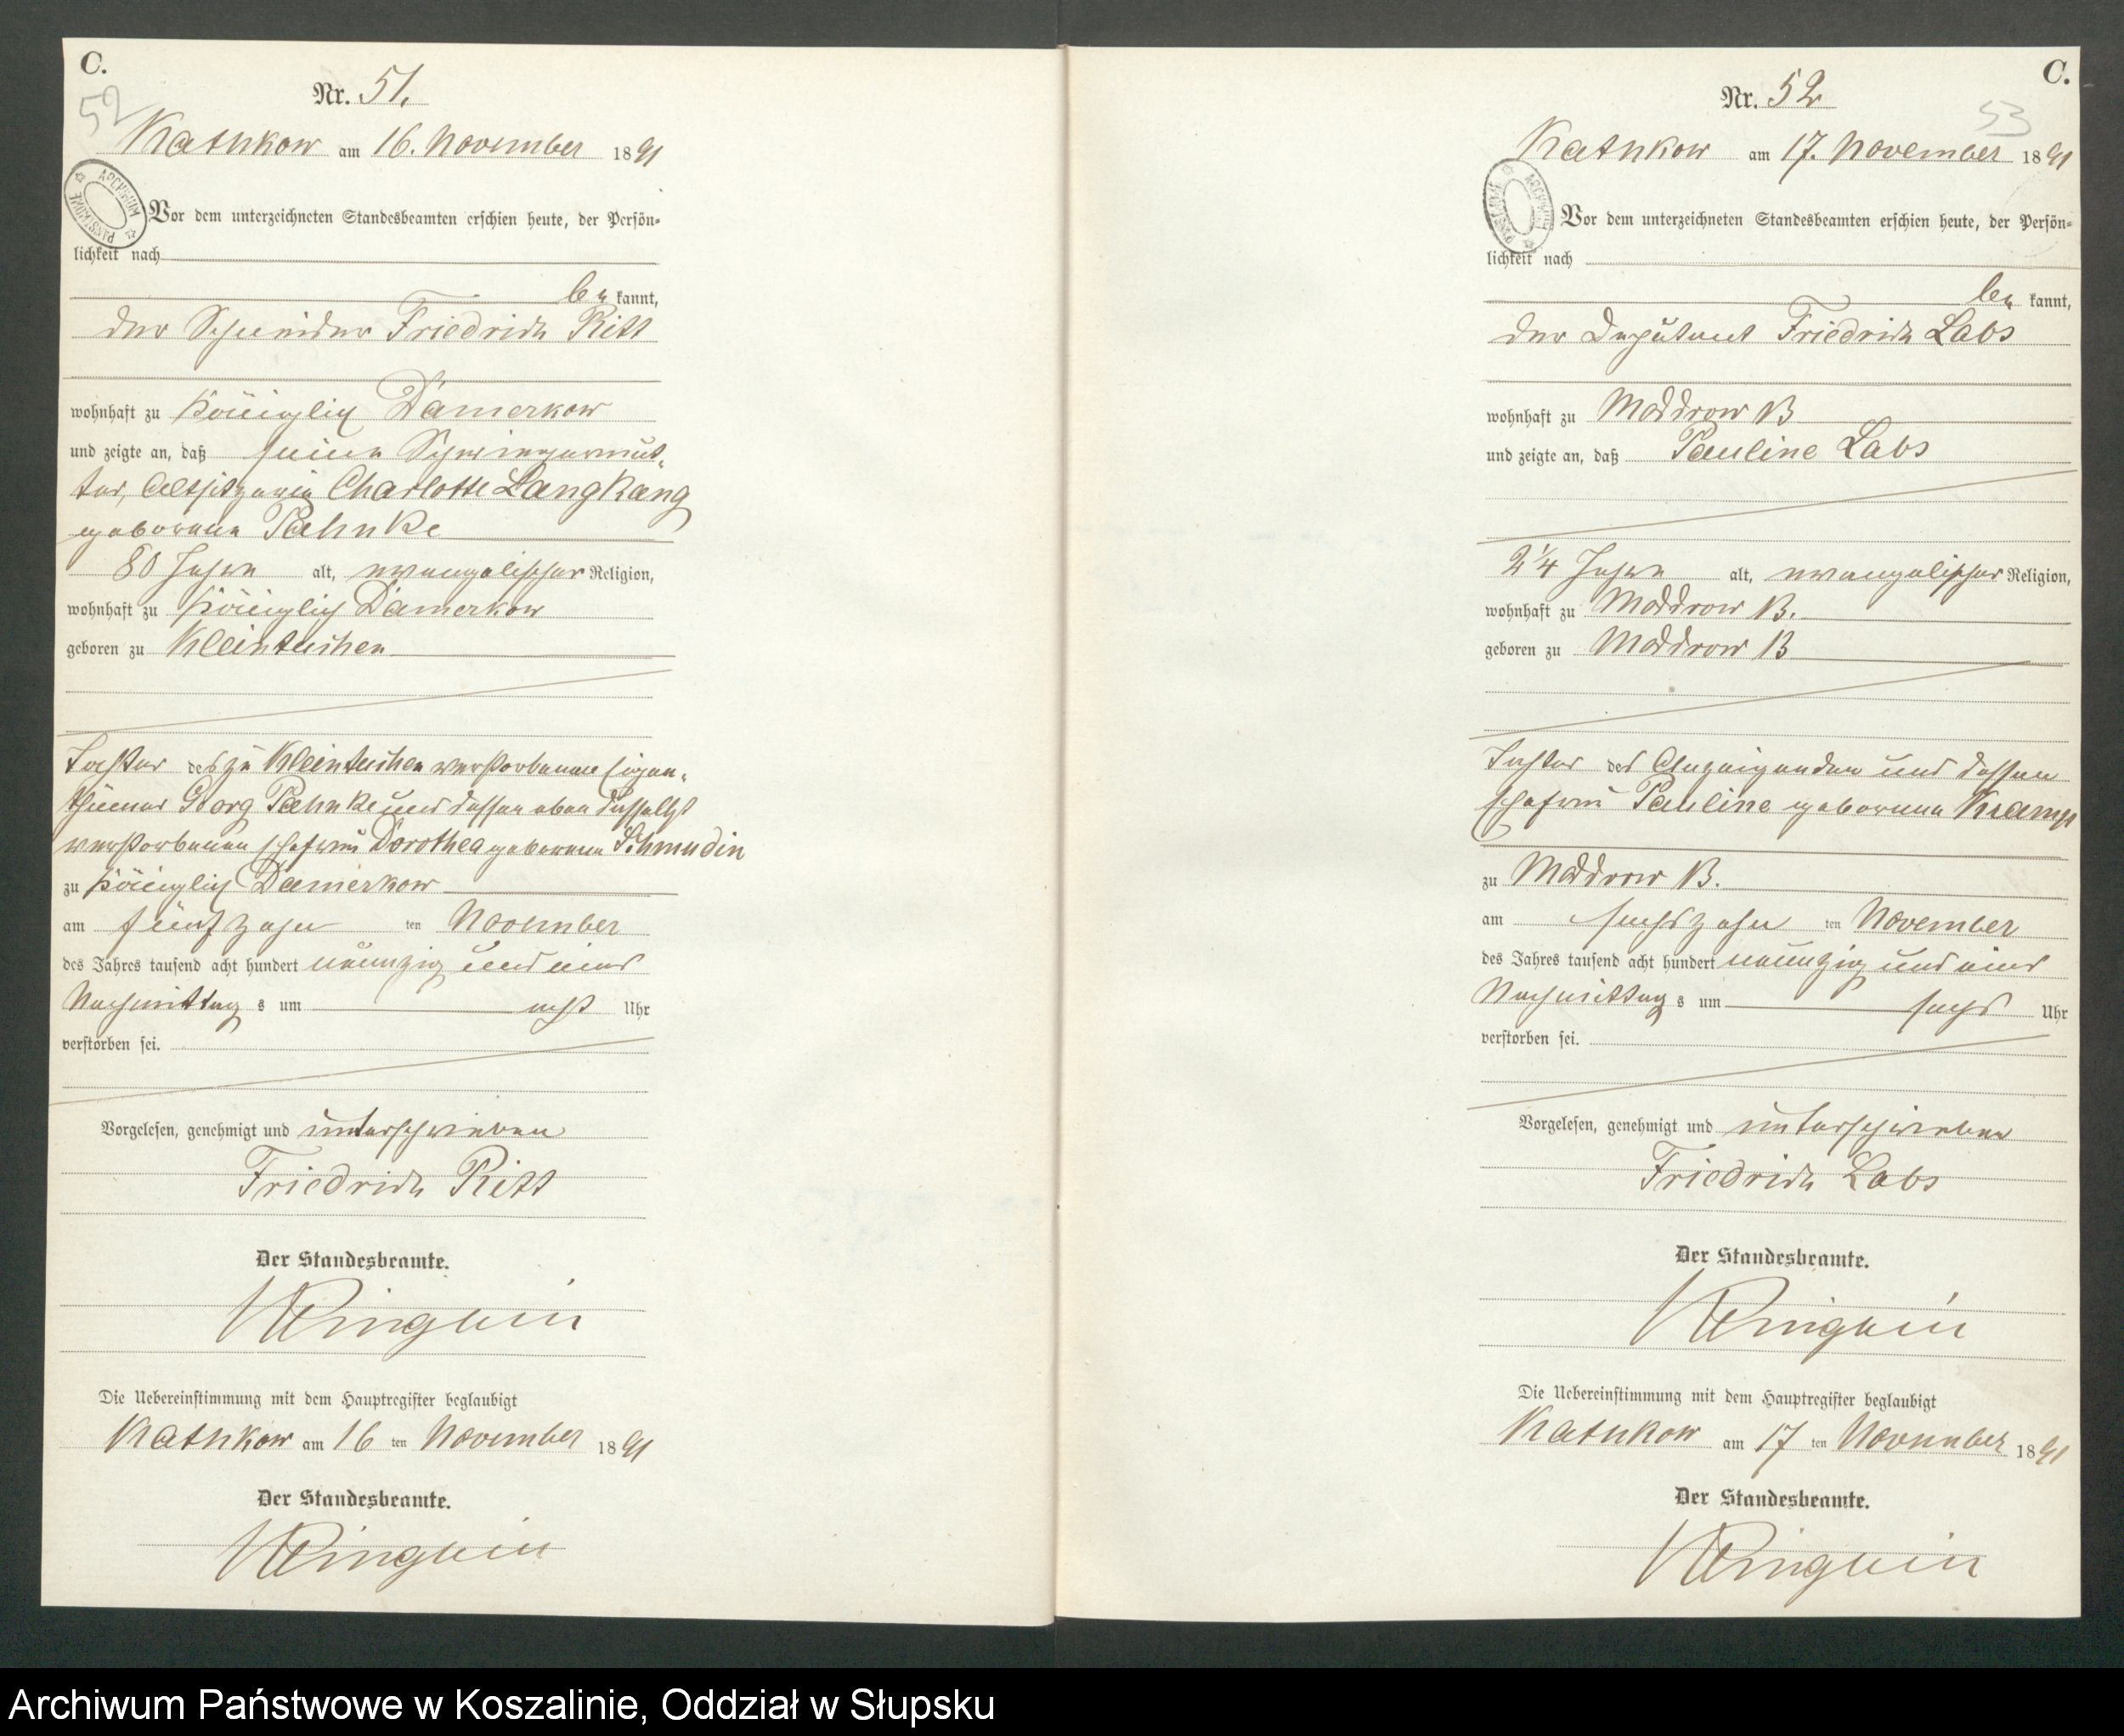 C.
52
Nr. 51.
Kathkow am 16. November 1891
ARCHIWUM PAŃSTWOWE
Vor dem unterzeichneten Standesbeamten erschien heute, der Persön-
lichkeit nach
be kannt,
der Schneider Friedrich Ritt
wohnhaft zu Königlich Damerkow
und zeigte an, daß seine Schwiegermut-
ter, Altsitzerin Charlotte Langkang
geborene Pahnke
80 Jahre alt, evangelischer Religion,
wohnhaft zu Königlich Damerkow
geboren zu Kleintuchen
Tochter des zu Kleintuchen verstorbenen Eigen-
thümer Georg Pahnke und dessen eben daselbst
verstorbenen Ehefrau Dorothea geborene Schmudin
zu Königlich Damerkow
am fünfzehn ten November
des Jahres tausend acht hundert neunzig und eins
Nachmittag s um acht Uhr
verstorben sei.
Vorgelesen, genehmigt und unterschrieben
Friedrich Ritt
Der Standesbeamte.
Die Uebereinstimmung mit dem Hauptregister beglaubigt
Kathkow am 16 ten November 1891
Der Standesbeamte.
C.
53
Nr. 52
Kathkow am 17. November 1891
ARCHIWUM PAŃSTWOWE
Vor dem unterzeichneten Standesbeamten erschien heute, der Persön-
lichkeit nach
be kannt,
der Deputant Friedrich Labs
wohnhaft zu Moddrow B
und zeigte an, daß Pauline Labs
2 1/4 Jahre alt, evangelischer Religion,
wohnhaft zu Moddrow B.
geboren zu Moddrow B
Tochter des Anzeigenden und dessen
Ehefrau Pauline geborene Kramp
zu Moddrow B.
am sechszehn ten November
des Jahres tausend acht hundert neunzig und eins
Nachmittag s um sechs Uhr
verstorben sei.
Vorgelesen, genehmigt und unterschrieben
Friedrich Labs
Der Standesbeamte.
Die Uebereinstimmung mit dem Hauptregister beglaubigt
Kathkow am 17 ten November 1891
Der Standesbeamte.
Archiwum Państwowe w Koszalinie, Oddział w Słupsku